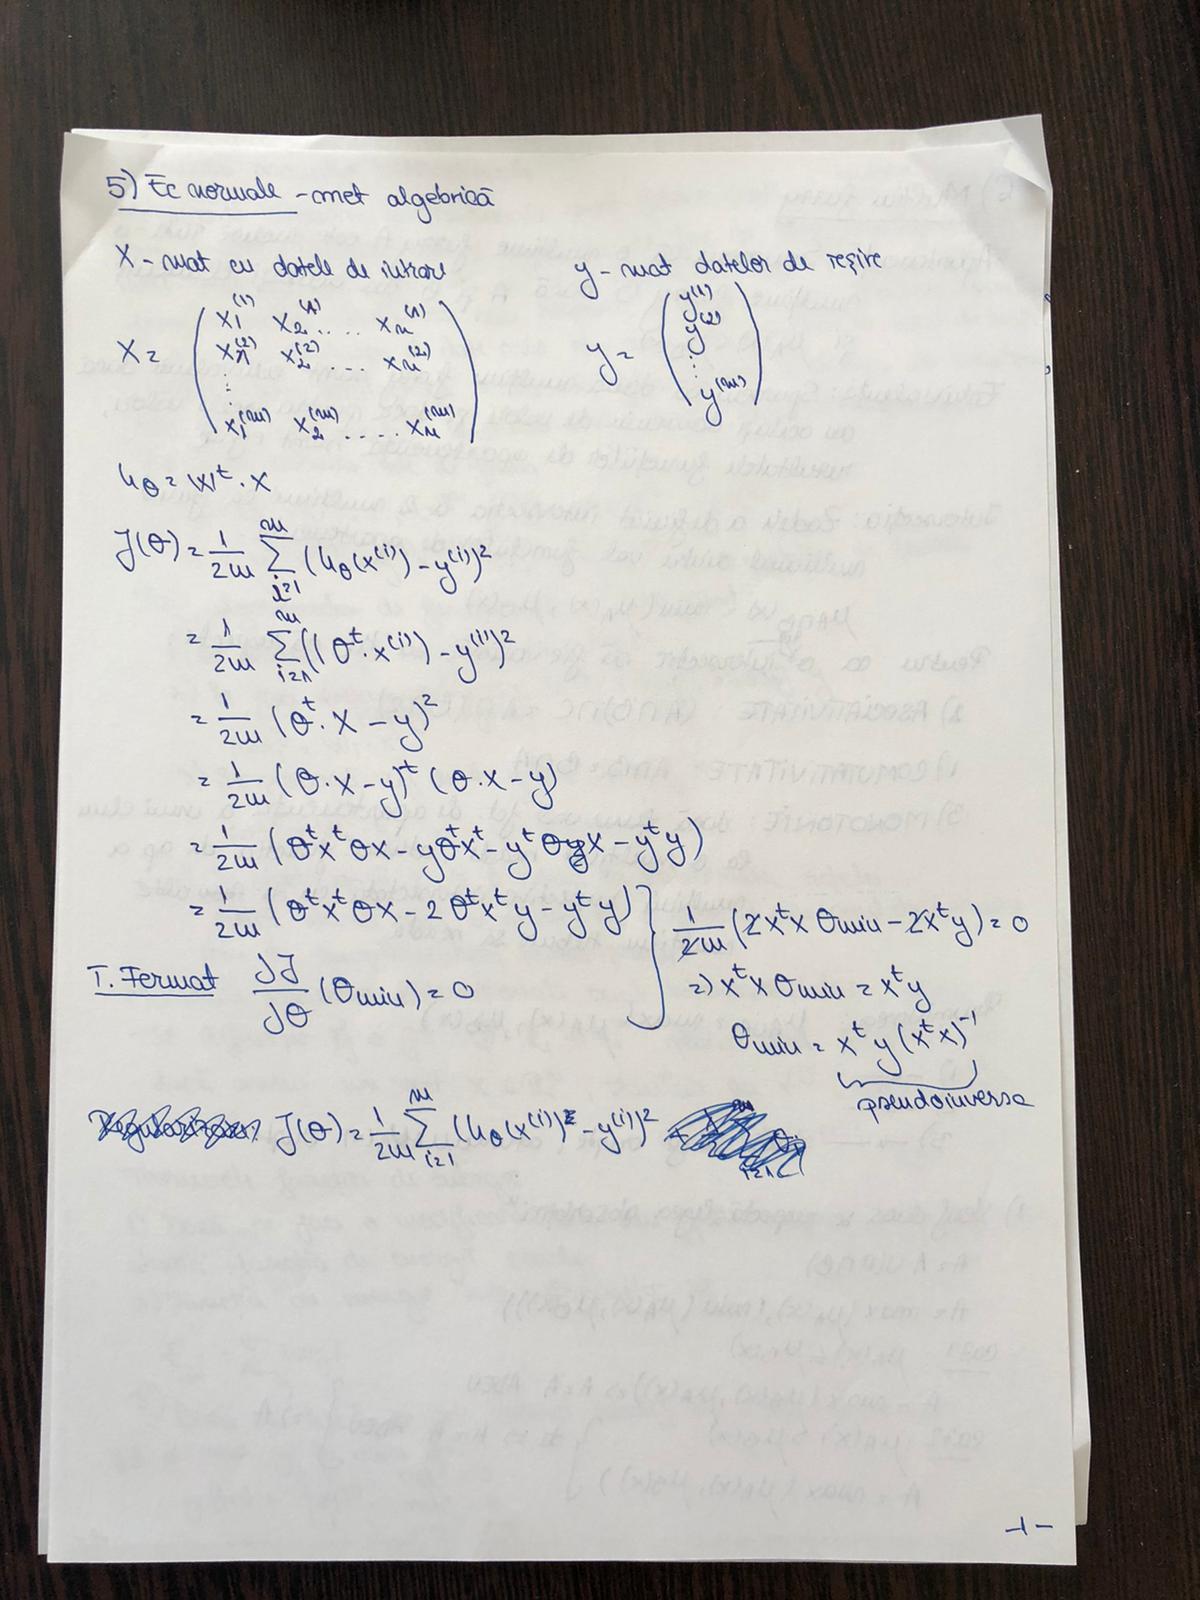 5) Ec normale - met algebrică
X - mat cu datele de intrare
y - mat datelor de ieșire
X = ( x₁⁽¹⁾ x₂⁽¹⁾ . . . . . xₙ⁽¹⁾
x₁⁽²⁾ x₂⁽²⁾ . . . xₙ⁽²⁾
⋮
x₁⁽ᵐ⁾ x₂⁽ᵐ⁾ . . . . xₙ⁽ᵐ⁾ )
y = ( y⁽¹⁾
y⁽²⁾
⋮
y⁽ᵐ⁾ )
h_θ = W^t · X
J(θ) = 1/2m Σ_{i=1}^m (h_θ(x⁽ⁱ⁾) - y⁽ⁱ⁾)²
= 1/2m Σ_{i=1}^m ((θ^t · x⁽ⁱ⁾) - y⁽ⁱ⁾)²
= 1/2m (θ^t · X - y)²
= 1/2m (θ · X - y)^t (θ · X - y)
= 1/2m (θ^t x^t θx - yθ^t x^t - y^t θx - y^t y)
= 1/2m (θ^t x^t θx - 2 θ^t x^t y - y^t y)
T. Fermat ∂J/∂θ (θmin) = 0
1/2m (2x^t x θmin - 2x^t y) = 0
=) x^t x θmin = x^t y
θmin = x^t y (x^t x)^-1
pseudoinversa
J(θ) = 1/2m Σ_{i=1}^m (h_θ(x⁽ⁱ⁾) - y⁽ⁱ⁾)²
-1-